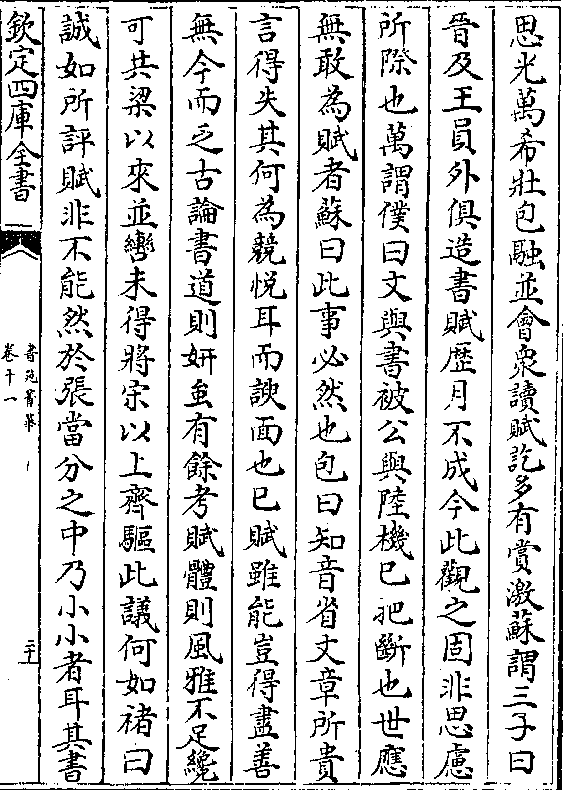 思光萬希壯包融並會衆讀賦訖多有賞激蘇謂三子曰
晉及王員外俱造書賦歷月不成今此觀之固非思慮
所際也萬謂僕曰文與書被公與陸機已把斷也世應
無敢為賦者蘇曰此事必然也包曰知音省文章所貴
言得失其何為競悅耳而諛面也已賦雖能豈得盡善
無今而乏古論書道則妍蚩有餘考賦體則風雅不足纔
可共梁以來並轡未得將宋以上齊驅此議何如褚曰
誠如所評賦非不能然於張當分之中乃小小者耳其書
欽定四庫全書
書苑菁華
卷十一
二十